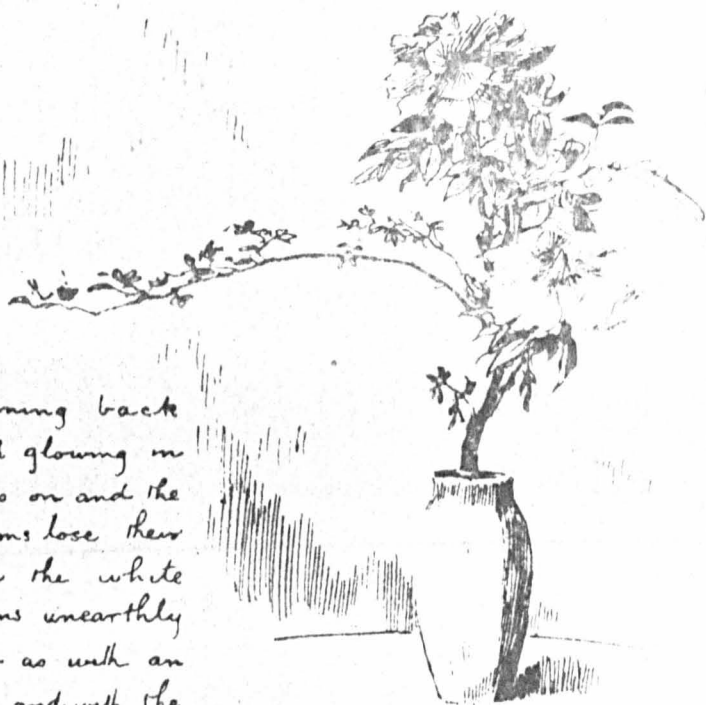 back
glowing in
on and the
lose their
the white
unearthly
as with an
and with the